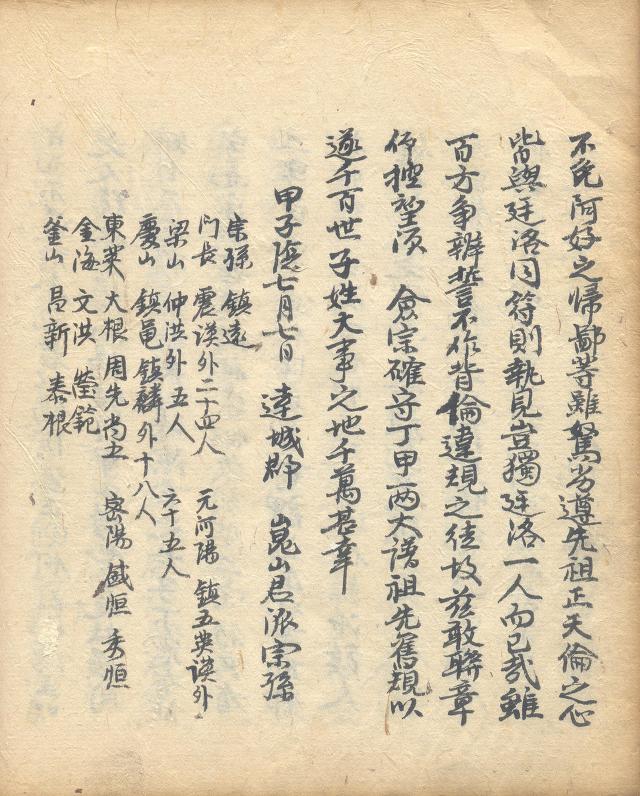 不免阿好之歸鄙等雖駑劣遵先祖正天倫之心
皆與廷洛同符則執見豈獨廷洛一人而已哉雖
百方爭辨誓不作背倫違規之徒故玆敢聯章
仰控望須 僉宗確守丁甲兩大譜祖先舊規以
遂千百世子姓大事之地千萬甚幸
甲子陰七月七日 達城郡 崑山君派宗孫
宗孫 鎮遠
門長 震謨外二十四人 元河陽 鎮五 英謨外
梁山 仲洪外五人 六十五人
慶山 鎮黽 鎮麟外十八人
東萊 大根 周先 尚五 密陽 盛恒 秀恒
金海 文洪 瑩範
釜山 昌新 泰根